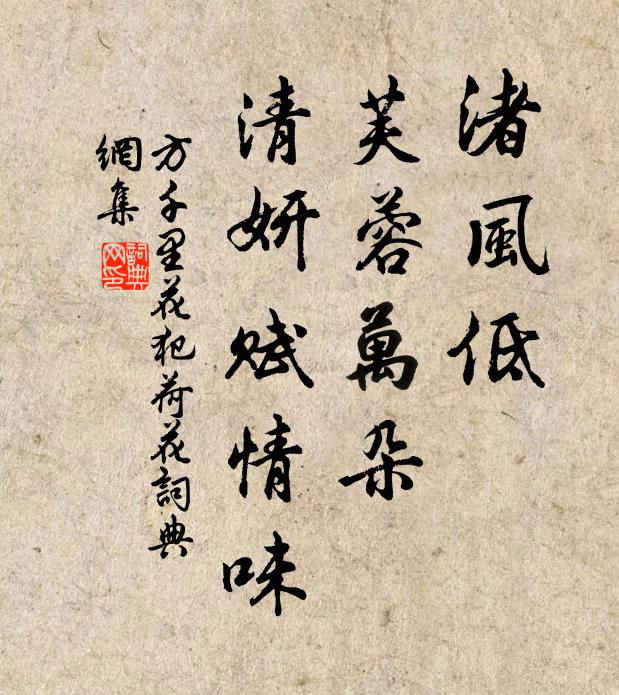 渚風低
芙蓉萬朵
清妍賦情味
方千里花犯荷花詞典
網集
詞典
网印